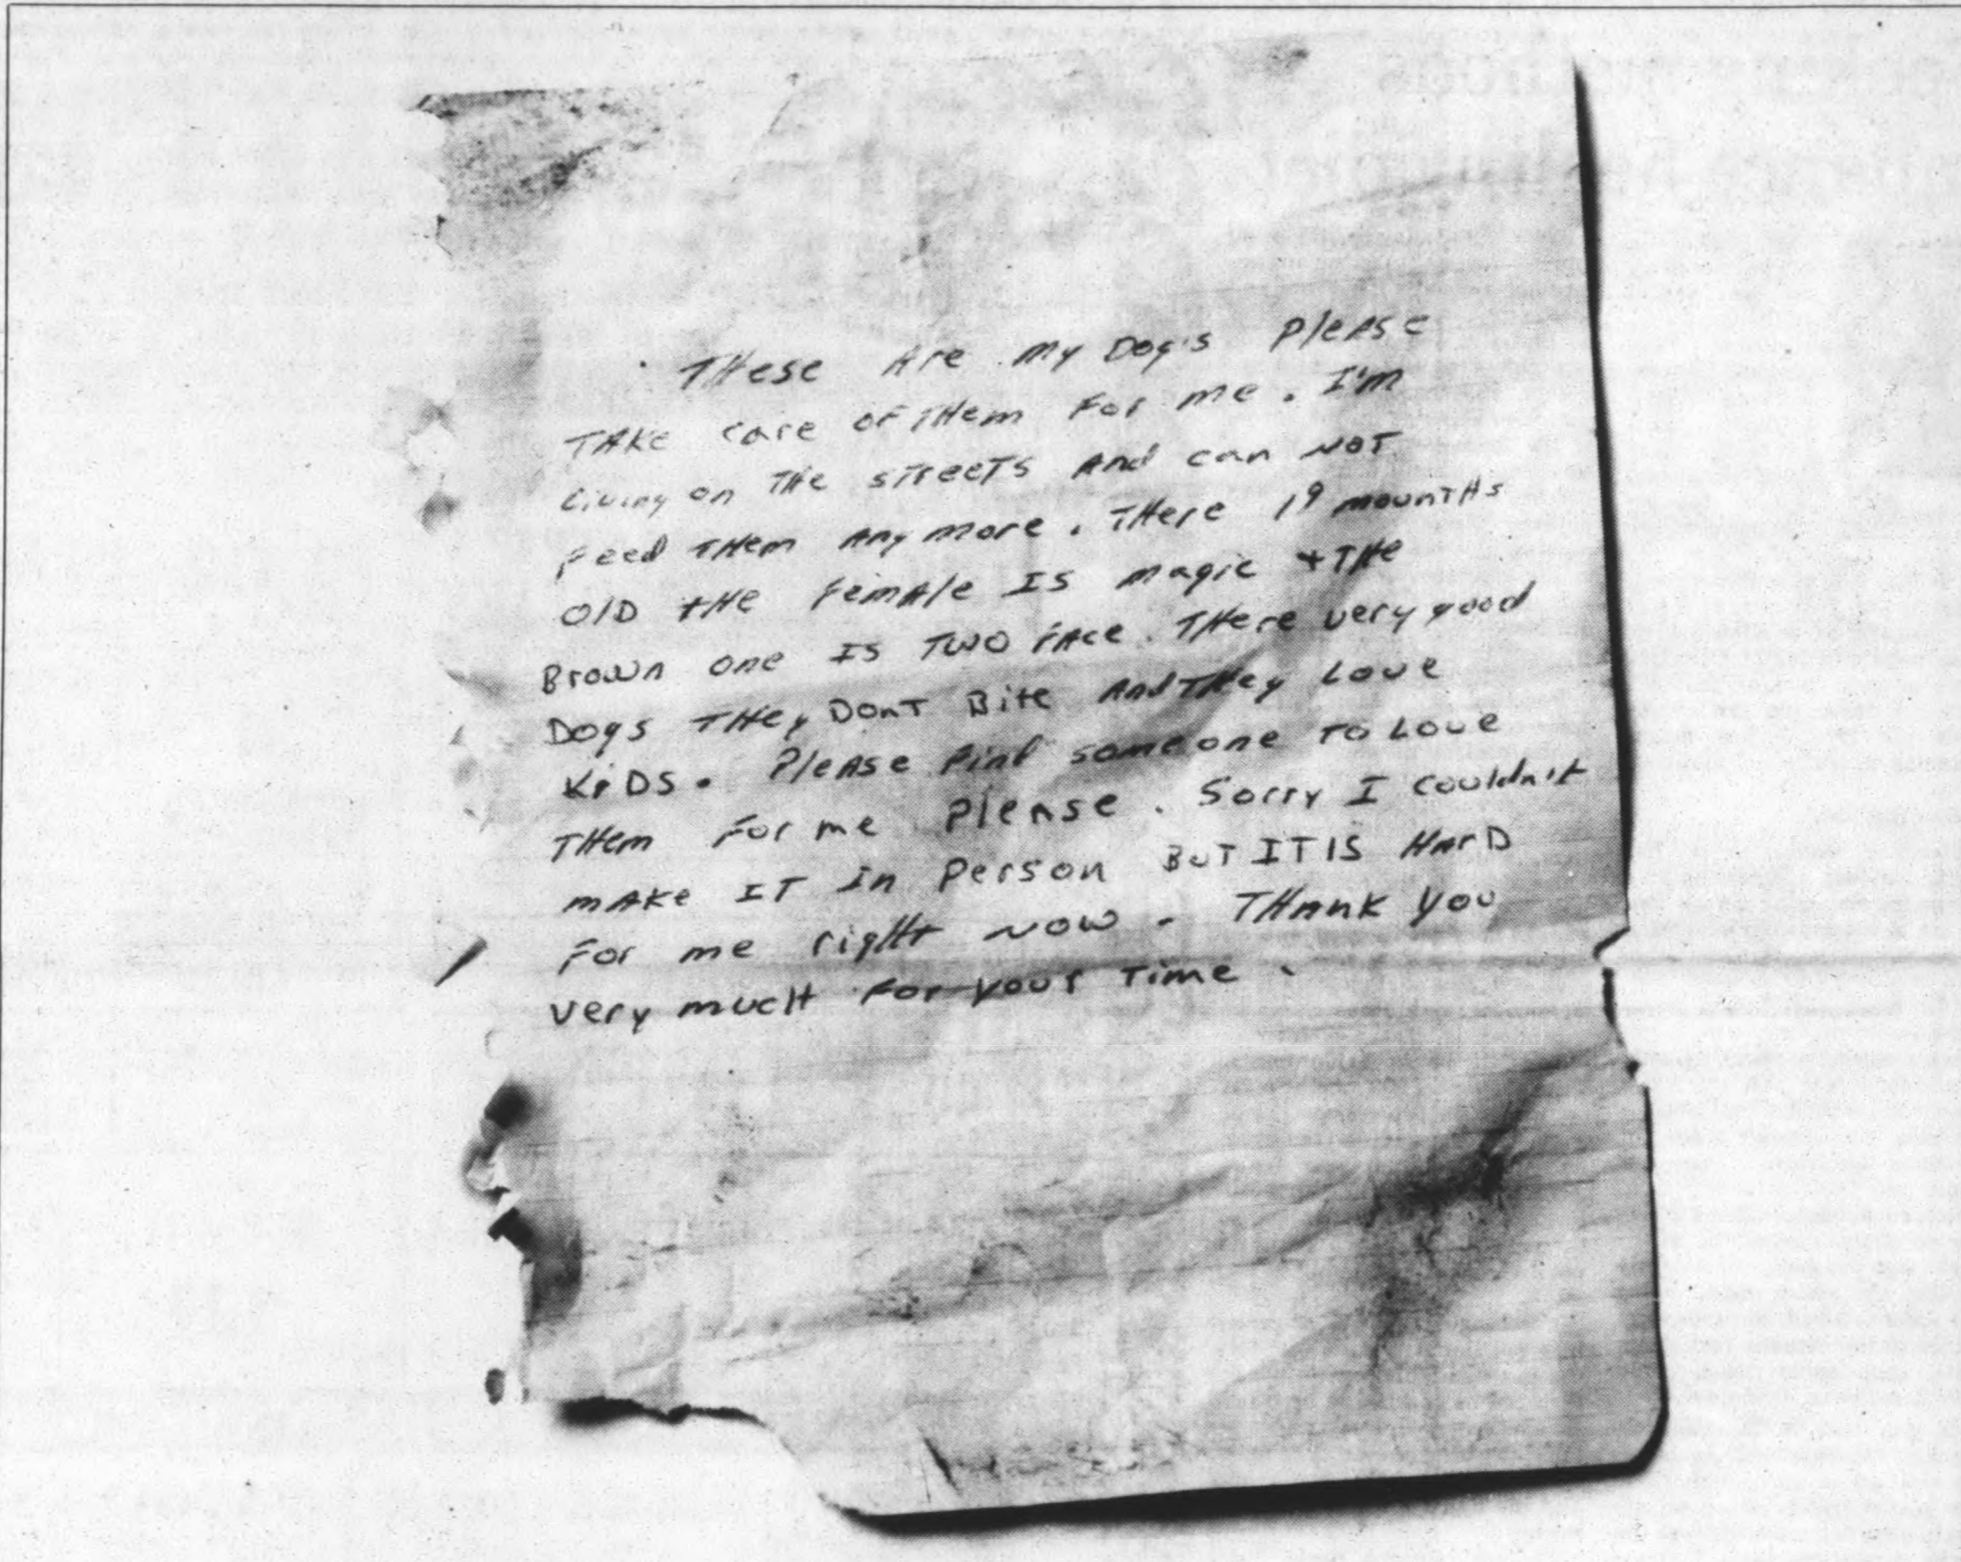 THese Are my Dog's PleAse
TAKe care oF THem For me. I'm
living on THe sTreeTs And can NOT
Feed THem Any more. THere 19 mounTHs
OlD tHe FemAle IS magic + THe
Brown one IS TWO FAce. THere very good
Dogs THey DonT Bite And THey Love
KiDS. PleAse Find someone TO Love
THem For me PleAse. Sorry I couldn't
mAKe IT in Person BuT IT IS HArD
For me rigHt NOW. THAnK you
very mucH For your Time.